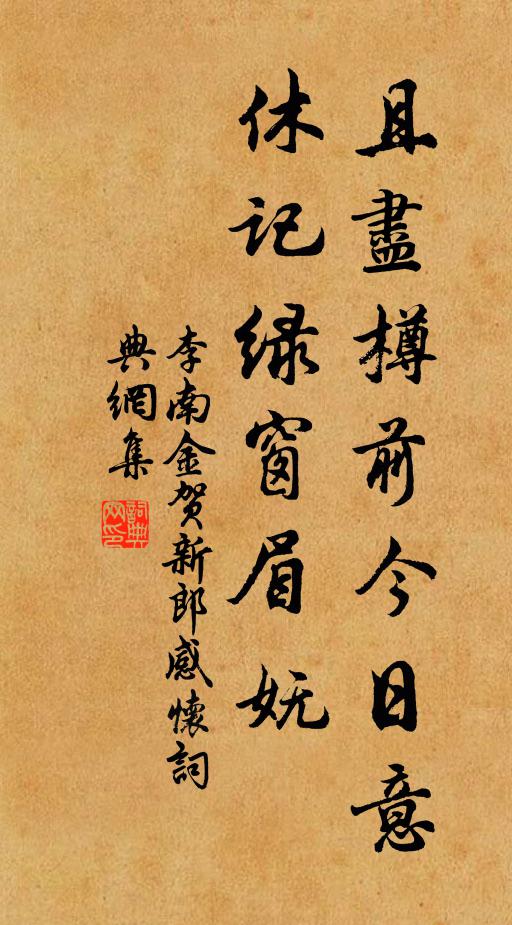 且盡樽前今日意
休记緑窗眉妩
李南金贺新郎感懷詞
典網集
詞典网印